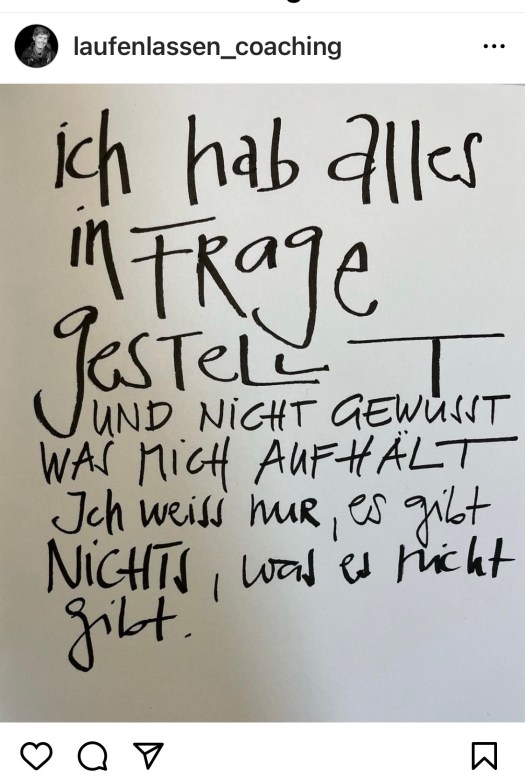 laufenlassen_coaching
ich hab alles
in FRage
gesTeLLT
UND NiCHT GEWUSST
WAS MiCH AUFHÄLT
Ich weiss nuR, es gibt
NiCHTS, was es nicht
gibt.